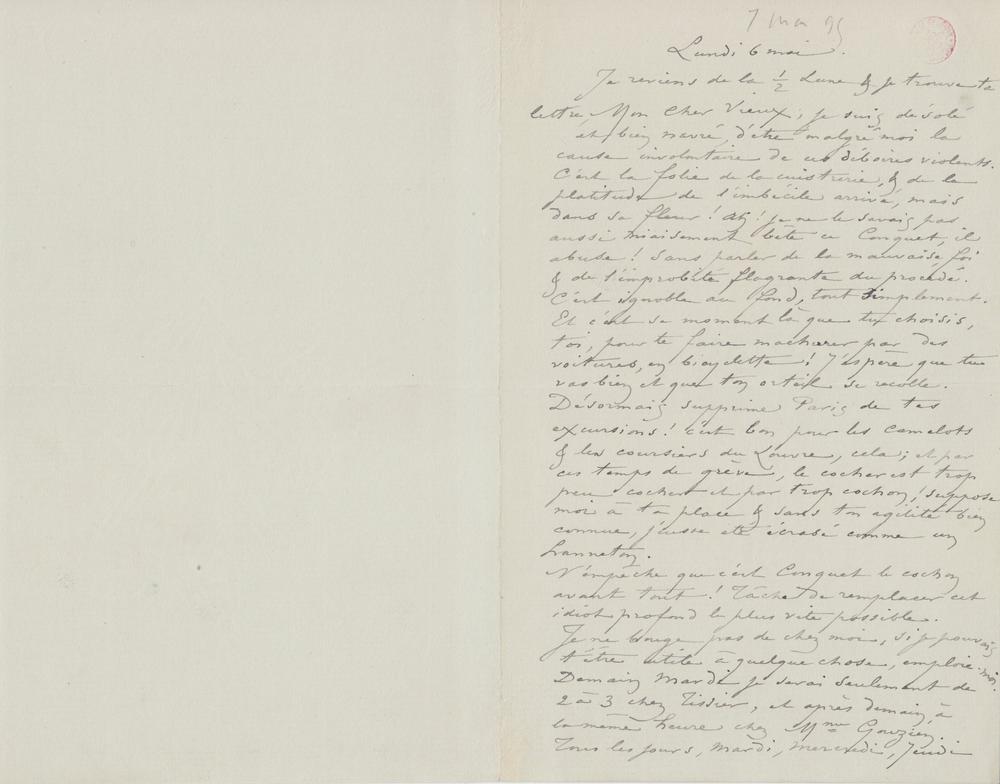 7 mai 95
Lundi 6 mai.
Je reviens de la 1/2 Lune & je trouve ta
lettre, Mon Cher Vieux; je suis désolé
et bien navré, d'être malgré moi la
cause involontaire de ces déboires violents.
C'est la folie de la cuistrerie, & de la
platitude de l'imbécile arrivé, mais
dans sa fleur! Ah! je ne le savais pas
aussi niaisement bête ce Conquet, il
abuse! Sans parler de la mauvaise foi
& de l'improbité flagrante du procédé.
C'est ignoble au fond, tout simplement.
Et c'est ce moment là que tu choisis,
toi, pour te faire machurer par des
voitures, en bicyclette! J'espère que tu
vas bien et que ton orteil se recolle.
Désormais supprime Paris de tes
excursions! c'est bon pour les camelots
& les coursiers du Louvre, cela; et par
ces temps de grève, le cocher est trop
peu cocher et par trop cochon! suppose
moi à ta place & sans ton agilité bien
connue, j'eusse été écrasé comme un
hanneton.
N'empêche que c'est Conquet le cochon
avant tout! Tâche de remplacer cet
idiot profond le plus vite possible.
Je ne bouge pas de chez moi, si je pouvais
t'être utile à quelque chose, emploie-moi.
Demain Mardi je serai seulement de
2 à 3 chez Tissier, et après demain, à
la même heure chez Mme Gouzien.
Tous les jours, mardi, mercredi, jeudi